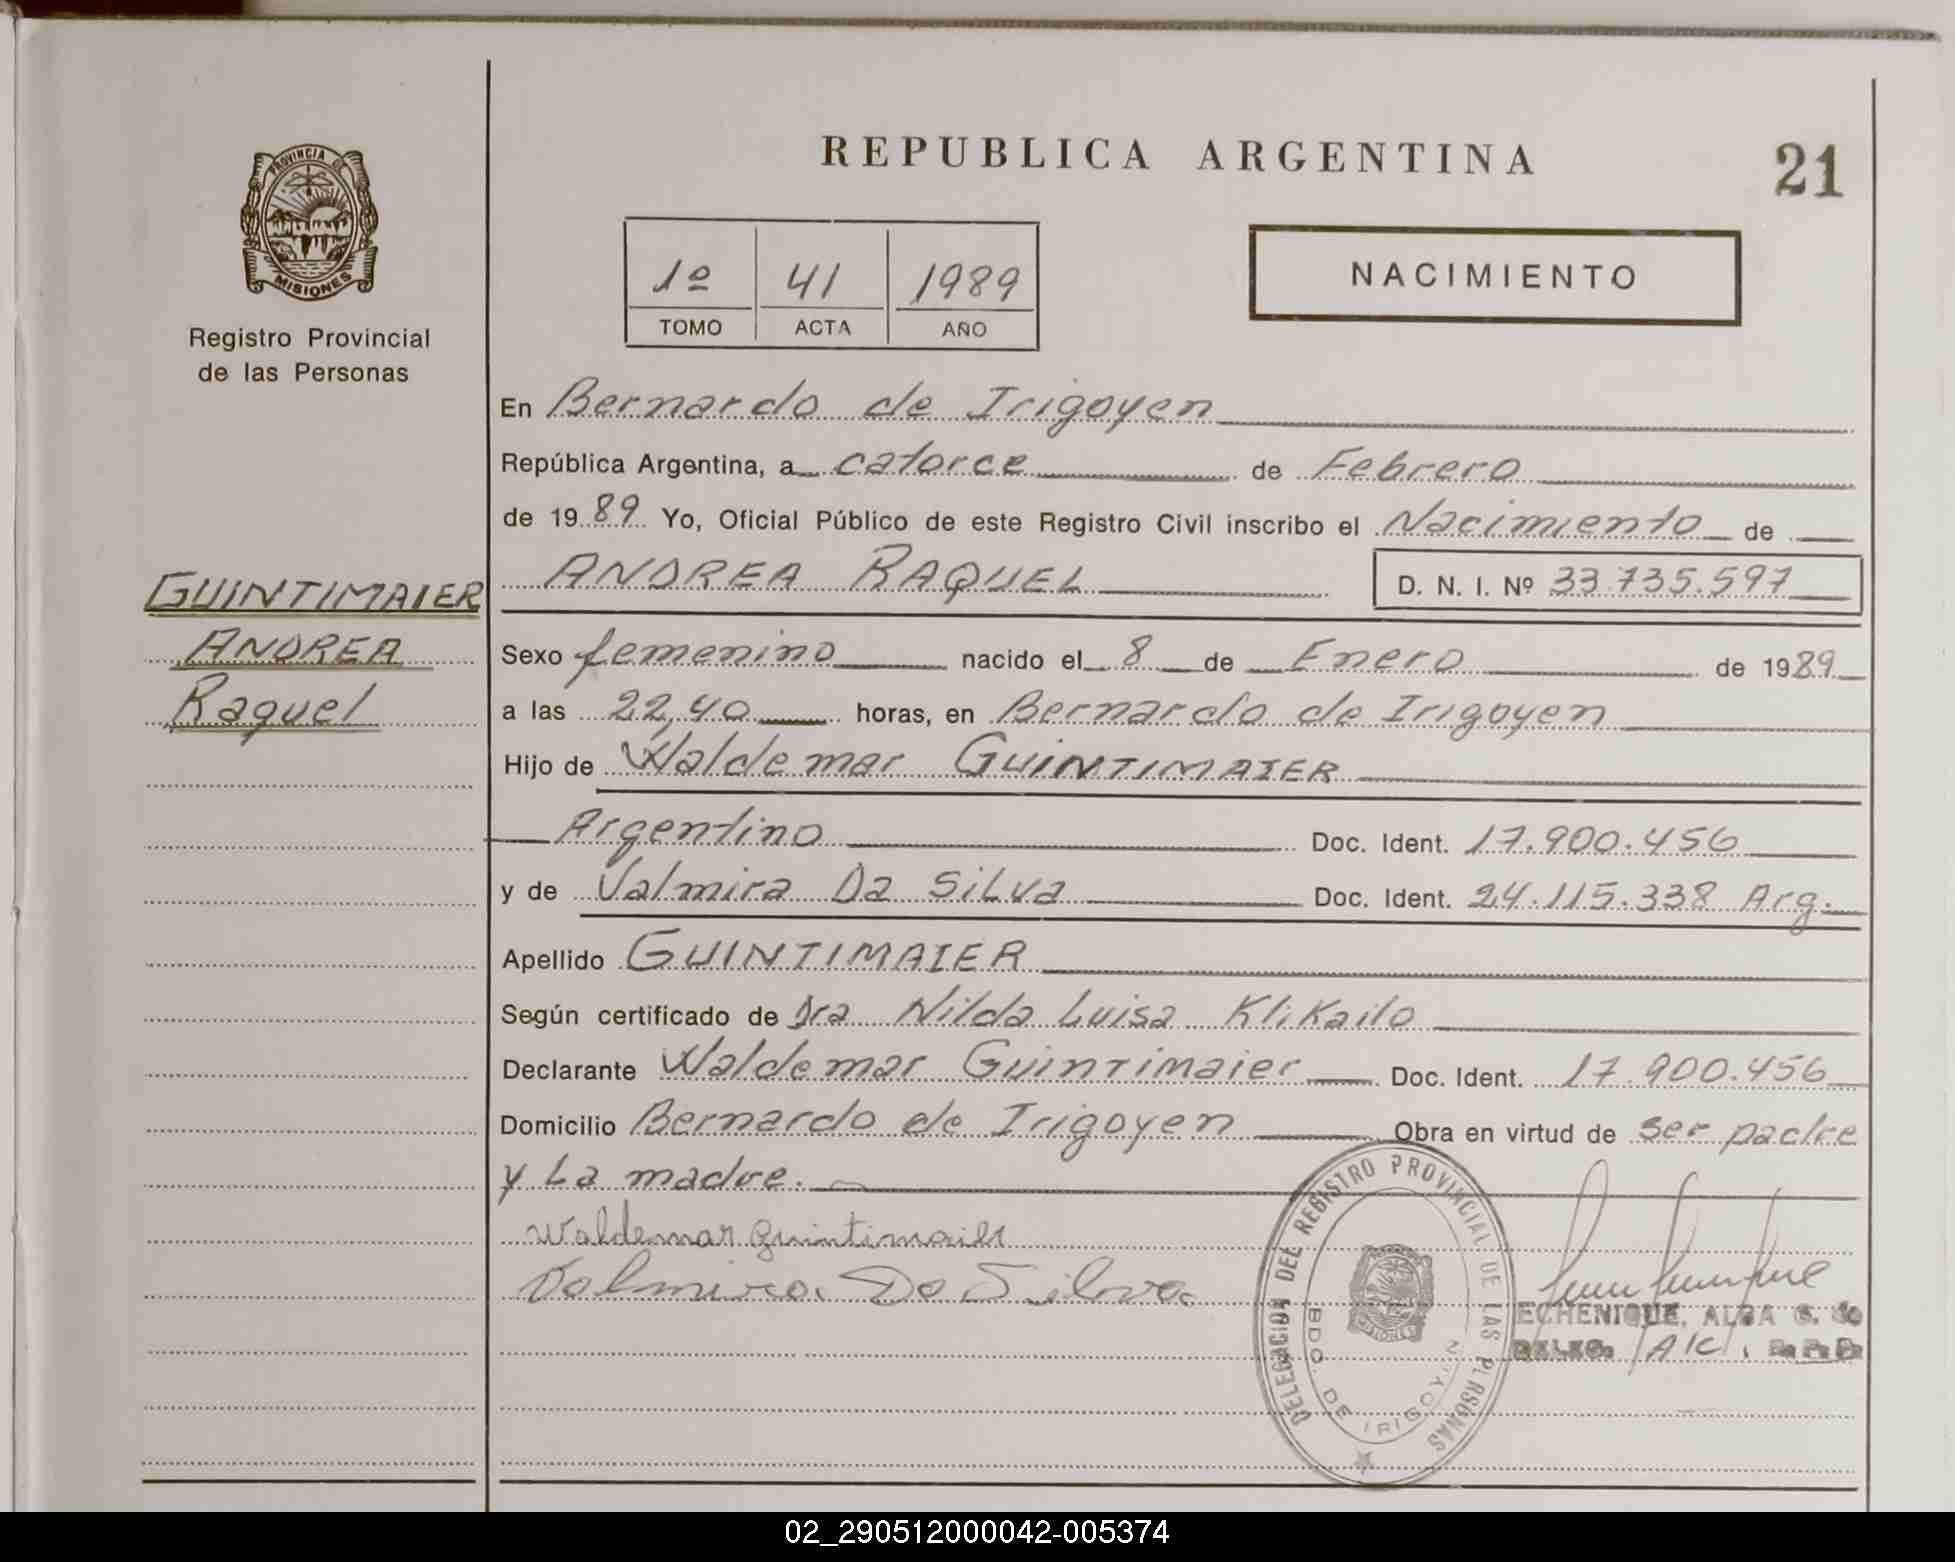 REPUBLICA ARGENTINA
21
PROVINCIA DE
MISIONES
Registro Provincial
de las Personas
1º 41 1989
TOMO ACTA AÑO
NACIMIENTO
En Bernardo de Irigoyen
República Argentina, a catorce de Febrero
de 1989 Yo, Oficial Público de este Registro Civil inscribo el Nacimiento de
ANDREA RAQUEL D. N. I. Nº 33.735.597
GUINTIMAIER
ANDREA
Raquel
Sexo femenino nacido el 8 de Enero de 1989
a las 22,40 horas, en Bernardo de Irigoyen
Hijo de Waldemar GUINTIMAIER
Argentino Doc. Ident. 17.900.456
y de Valmira Da Silva Doc. Ident. 24.115.338 Arg.
Apellido GUINTIMAIER
Según certificado de Dra Nilda Luisa Klikailo
Declarante Waldemar Guintimaier Doc. Ident. 17.900.456
Domicilio Bernardo de Irigoyen Obra en virtud de ser padre
y La madre.
Waldemar Guintimaier
Valmira Da Silva
DELEGACION DEL REGISTRO PROVINCIAL DE LAS PERSONAS
BDO. DE IRIGOYEN
MISIONES
ECHENIQUE, ALBA G. de
DELEG. R.P.P.
02_290512000042-005374